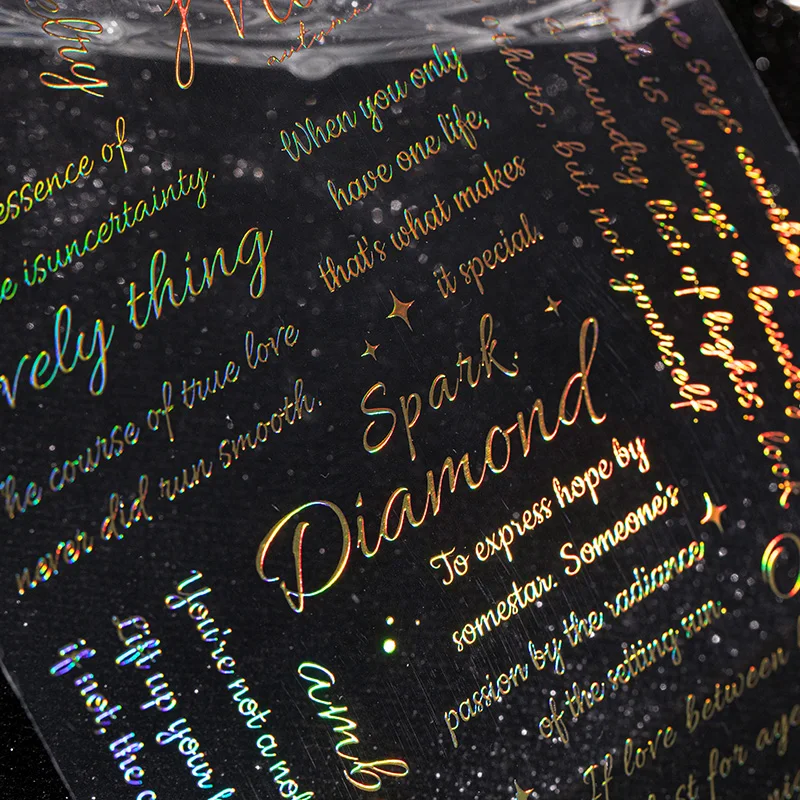 autumn
essence of
e isuncertainty.
vely thing
he course of true love
never did run smooth.
When you only
have one life,
that's what makes
it special.
Spark.
Diamond
To express hope by
somestar. Someone's
passion by the radiance
of the setting sun.
others, but not yourself.
a laundry list of lights,
is always a laundry
ne says
look
You're not a
Lift up your
if not, the
amb
If love between
st for aye